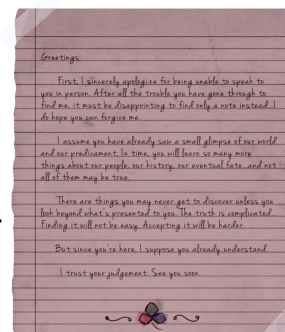 Greetings,
First, I sincerely apologize for being unable to speak to
you in person. After all the trouble you have gone through to
find me, it must be disappointing to find only a note instead...I
do hope you can forgive me.
I assume you have already saw a small glimpse of our world
and our predicament. In time, you will learn so many more
things about our people, our history, our eventual fate...and not
all of them may be true.
There are things you may never get to discover unless you
look beyond what's presented to you. The truth is complicated.
Finding it will not be easy. Accepting it will be harder.
But since you're here, I suppose you already understand.
I trust your judgement. See you soon.